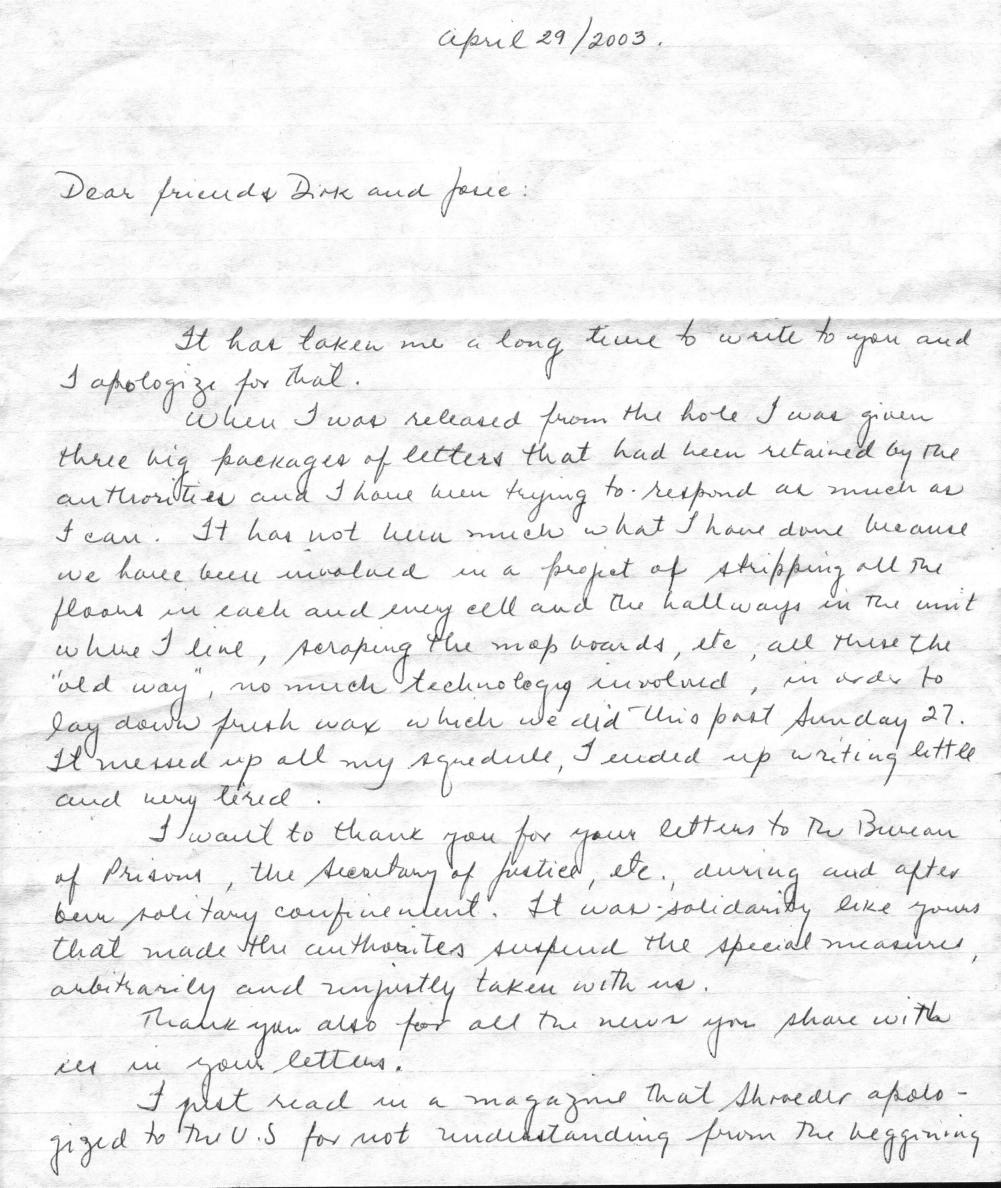 April 29/2003.
Dear friends Dirk and Josie:
It has taken me a long time to write to you and
I apologize for that.
When I was released from the hole I was given
three big packages of letters that had been retained by the
authorities and I have been trying to respond as much as
I can. It has not been much what I have done because
we have been involved in a project of stripping all the
floors in each and every cell and the hallways in the unit
where I live, scraping the mop boards, etc, all these the
"old way", no much technology involved, in order to
lay down fresh wax which we did this past Sunday 27.
It messed up all my squedule, I ended up writing little
and very tired.
I want to thank you for your letters to the Bureau
of Prisons, the Secretary of Justice, etc., during and after
been solitary confinement. It was solidarity like yours
that made the authorites suspend the special measures,
arbitrarily and unjustly taken with us.
Thank you also for all the news you share with
us in your letters.
I just read in a magazine that Shroeder apolo-
gized to the U.S for not understanding from the beggining